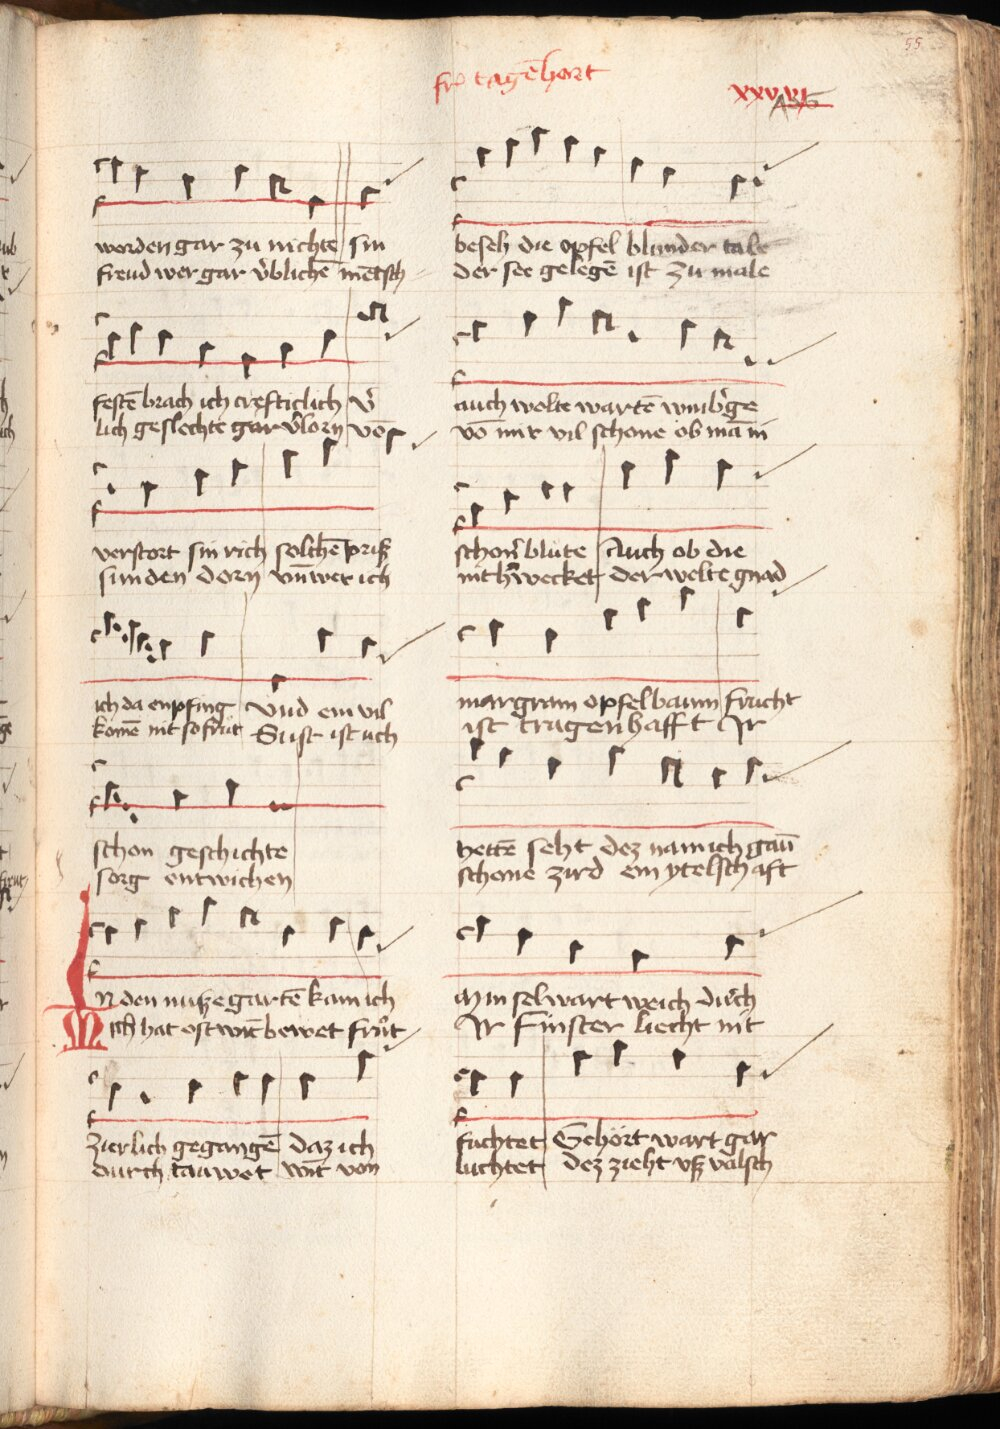 55
frō tagēhort
xxxvi
worden gar zu nichte sin
freud wer gar v̄blichē mētsch
festē brach ich crefticlich v̄
lich geslechte gar v̄lorn vō
verstort sin rich solchē priß
sunden dorn vn̄ wer ich
ich da enpfing Vnd ein vil
komē nit so frut Sust ist uch
schon geschichte
sorg entwichen
In den nuße gartē kam ich
Mich hat ost wīt bewet frůt
zierlich gegangē daz ich
durch tauwet wīt von
beseh die opfel blunder tale
der see gelegē ist zu male
auch wolte wartē winb'ge
vō mir vil schone ob mā in
schon' blute Auch ob die
nit h' wecket der welte gnad
margram opfel baum frucht
ist tragenhafft Ir
hettē seht dez nam ich gaū
schone zird ein ytelschaft
Min sel wart weich durch
Ir Finster liecht nit
fuchtet Gehört wart gar
luchtet dez zieht vß valsch